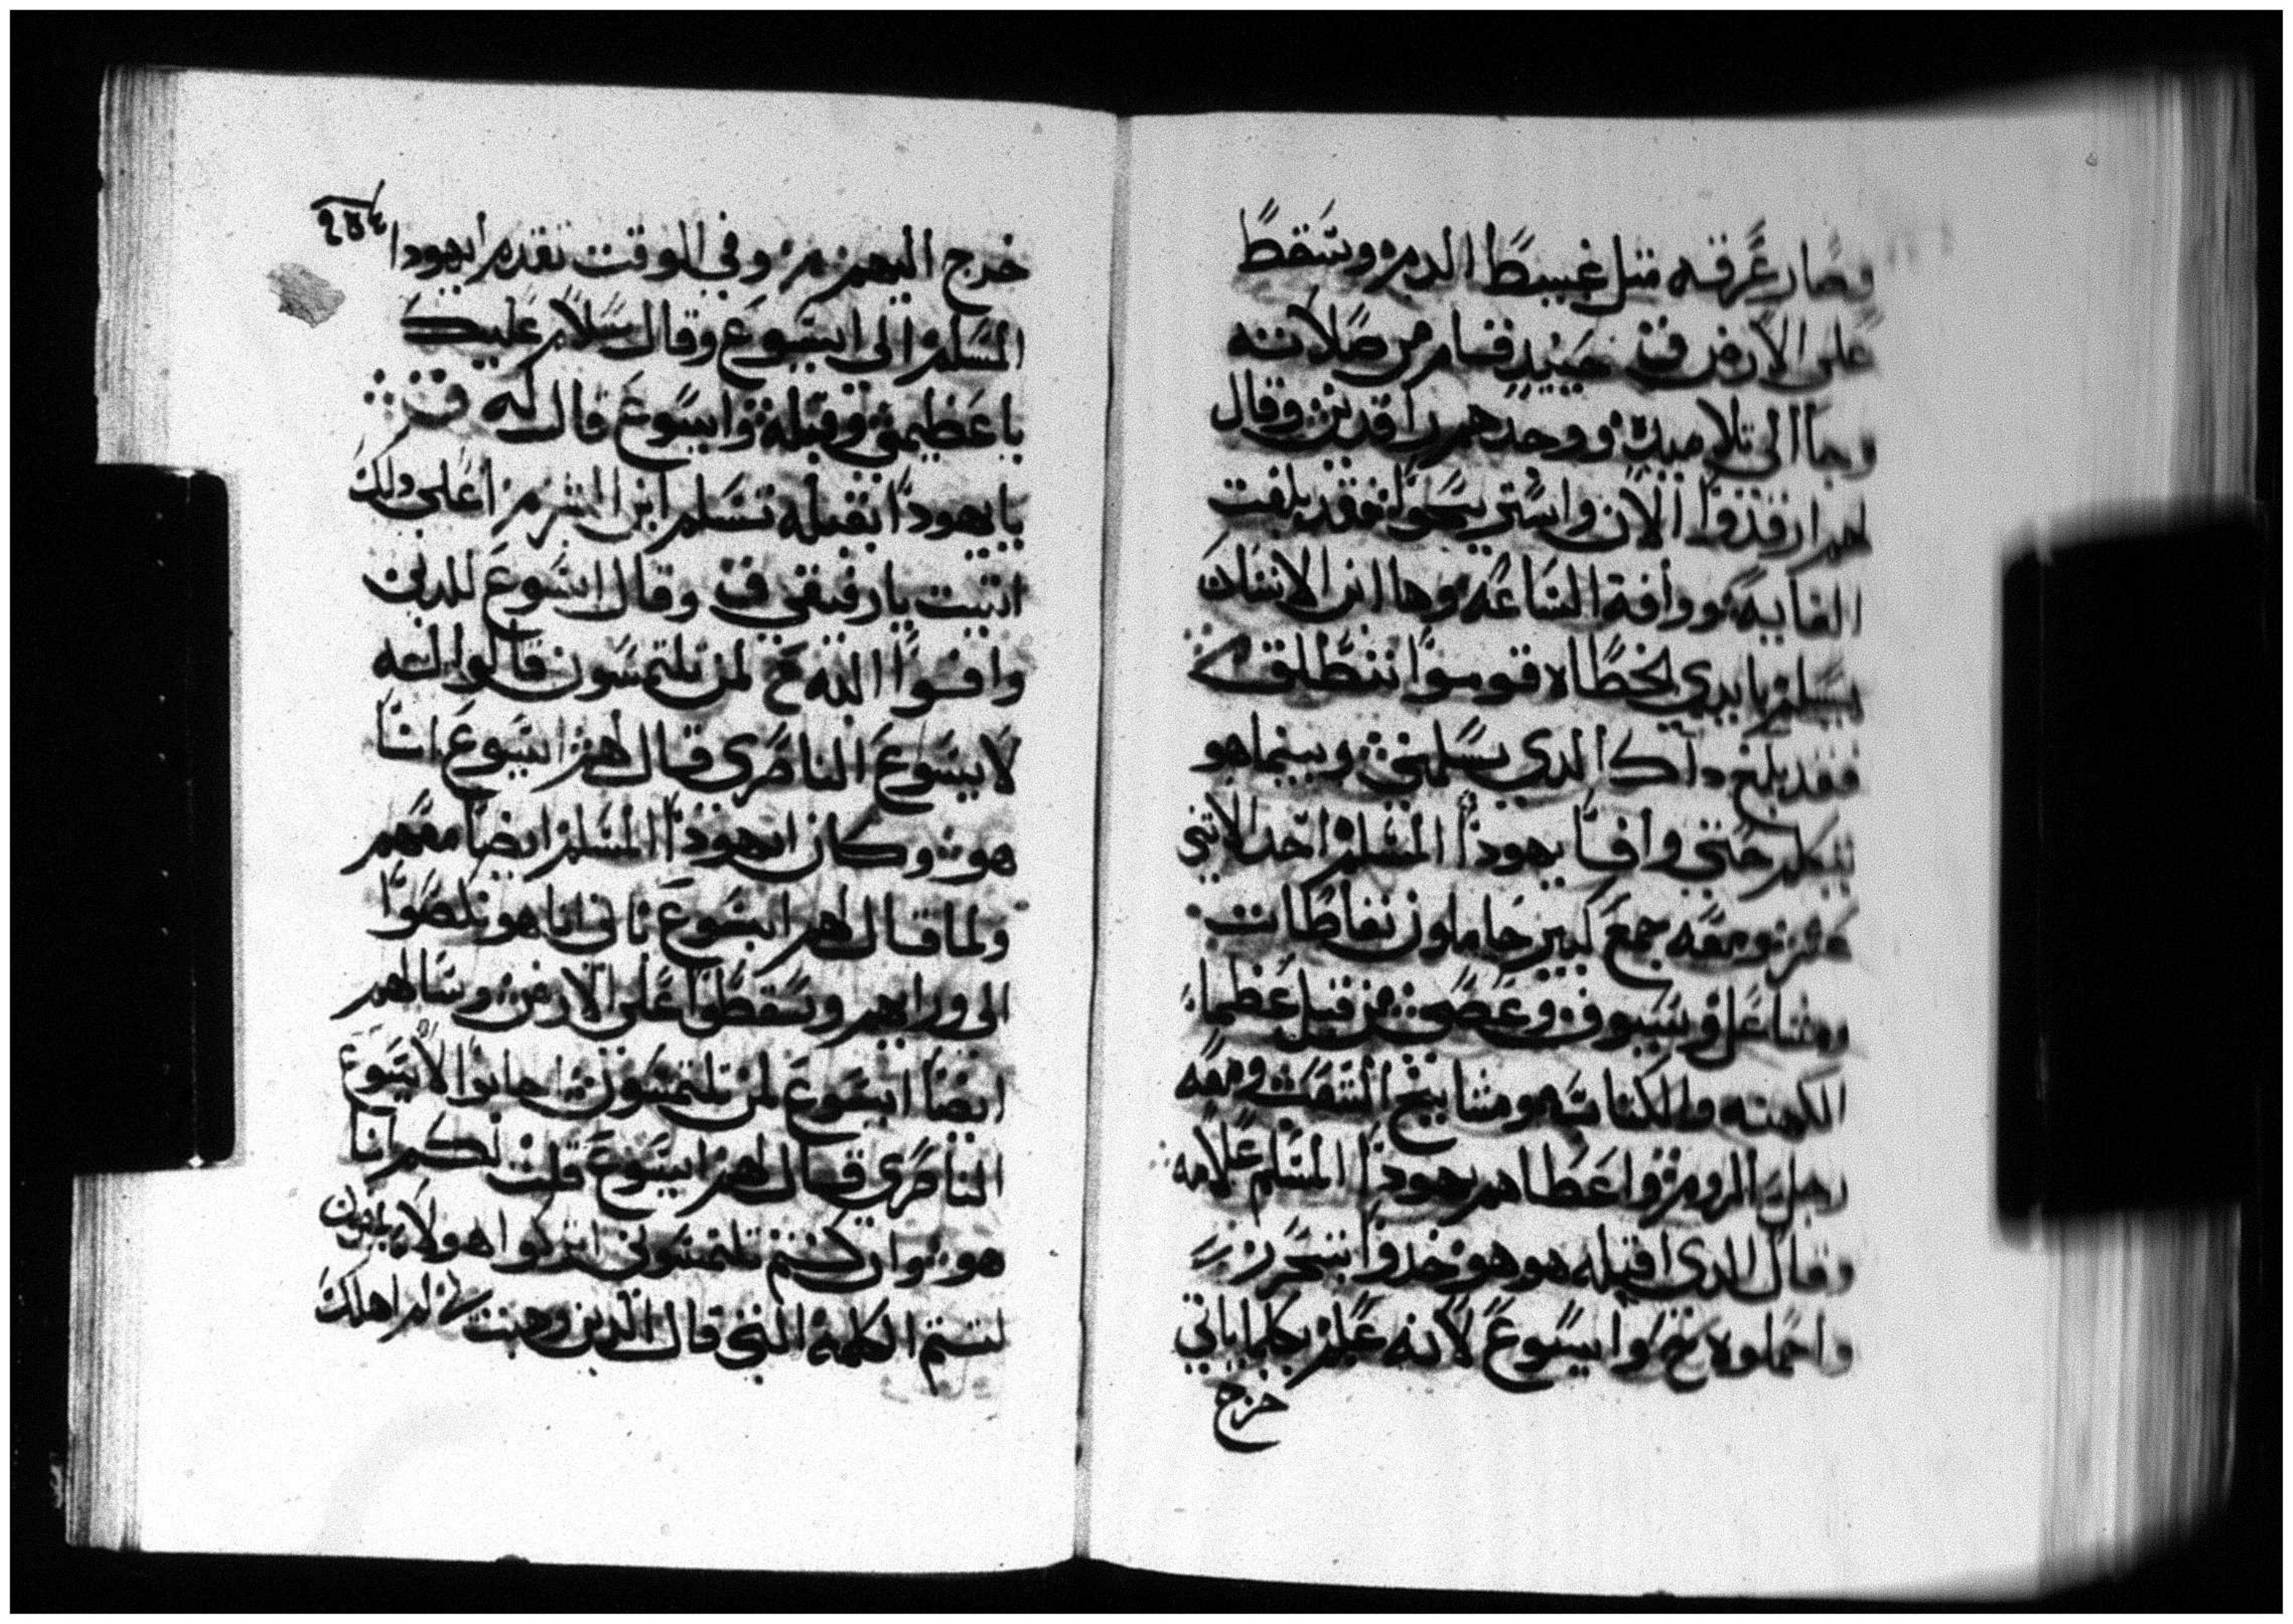 وصار عرقه متل غبيط الدم وسقط
على الارض ق حينيد قام من صلاته
وجا الى تلاميده ووجدهم راقدين وقال
لهم ارقدوا الان واستريحوا فقد بلغت
الغايه ووافة الساعه وها ابن الانسان
يسلم بايدي الخطاه قوموا ننطلق
فقد بلغ داك الدي يسلمني وبينما هو
يتكلم حتى وافا يهودا المسلم احد الاتني
عشر ومعه جمع كبير حاملون نفاطات
ومشاعل وسيوف وعصى من قبل عظما
الكهنه والكتابه ومشايخ الشعب ومعه
رجل الروم واعطاهم يهودا المسلم علامه
وقال الدي اقبله هو هو خدوا بتحرز
واحملوه وايسوع لانه علم بكلما ياتي
خرج
٢٥٤
خرج اليهم وفي الوقت تقدم ايهودا
المسلم الى ايسوع وقال سلام عليك
يا عظيمي وقبله وايسوع قال له
يايهودا بقبله تسلم ابن البشر اعلى دلك
اتيت يا رفيقي ق وقال ايسوع للدين
وافوا اليه لمن تلتمسون قالوا له
لايسوع الناصري قال لهم ايسوع انا
هو وكان ايهودا المسلم ايضا معهم
ولما قال لهم ايسوع باني انا هو نلصوا
الى ورايهم وسقطوا على الارض وسالهم
ايضا ايسوع لمن تلتمسون اجابوا لايسوع
الناصري قال لهم ايسوع قلت لكم انا
هو وان كنتم تلتمسوني اتركوا هولا يمضون
لتتم الكلمة التي قال الدين وهبت لي لم اهلك